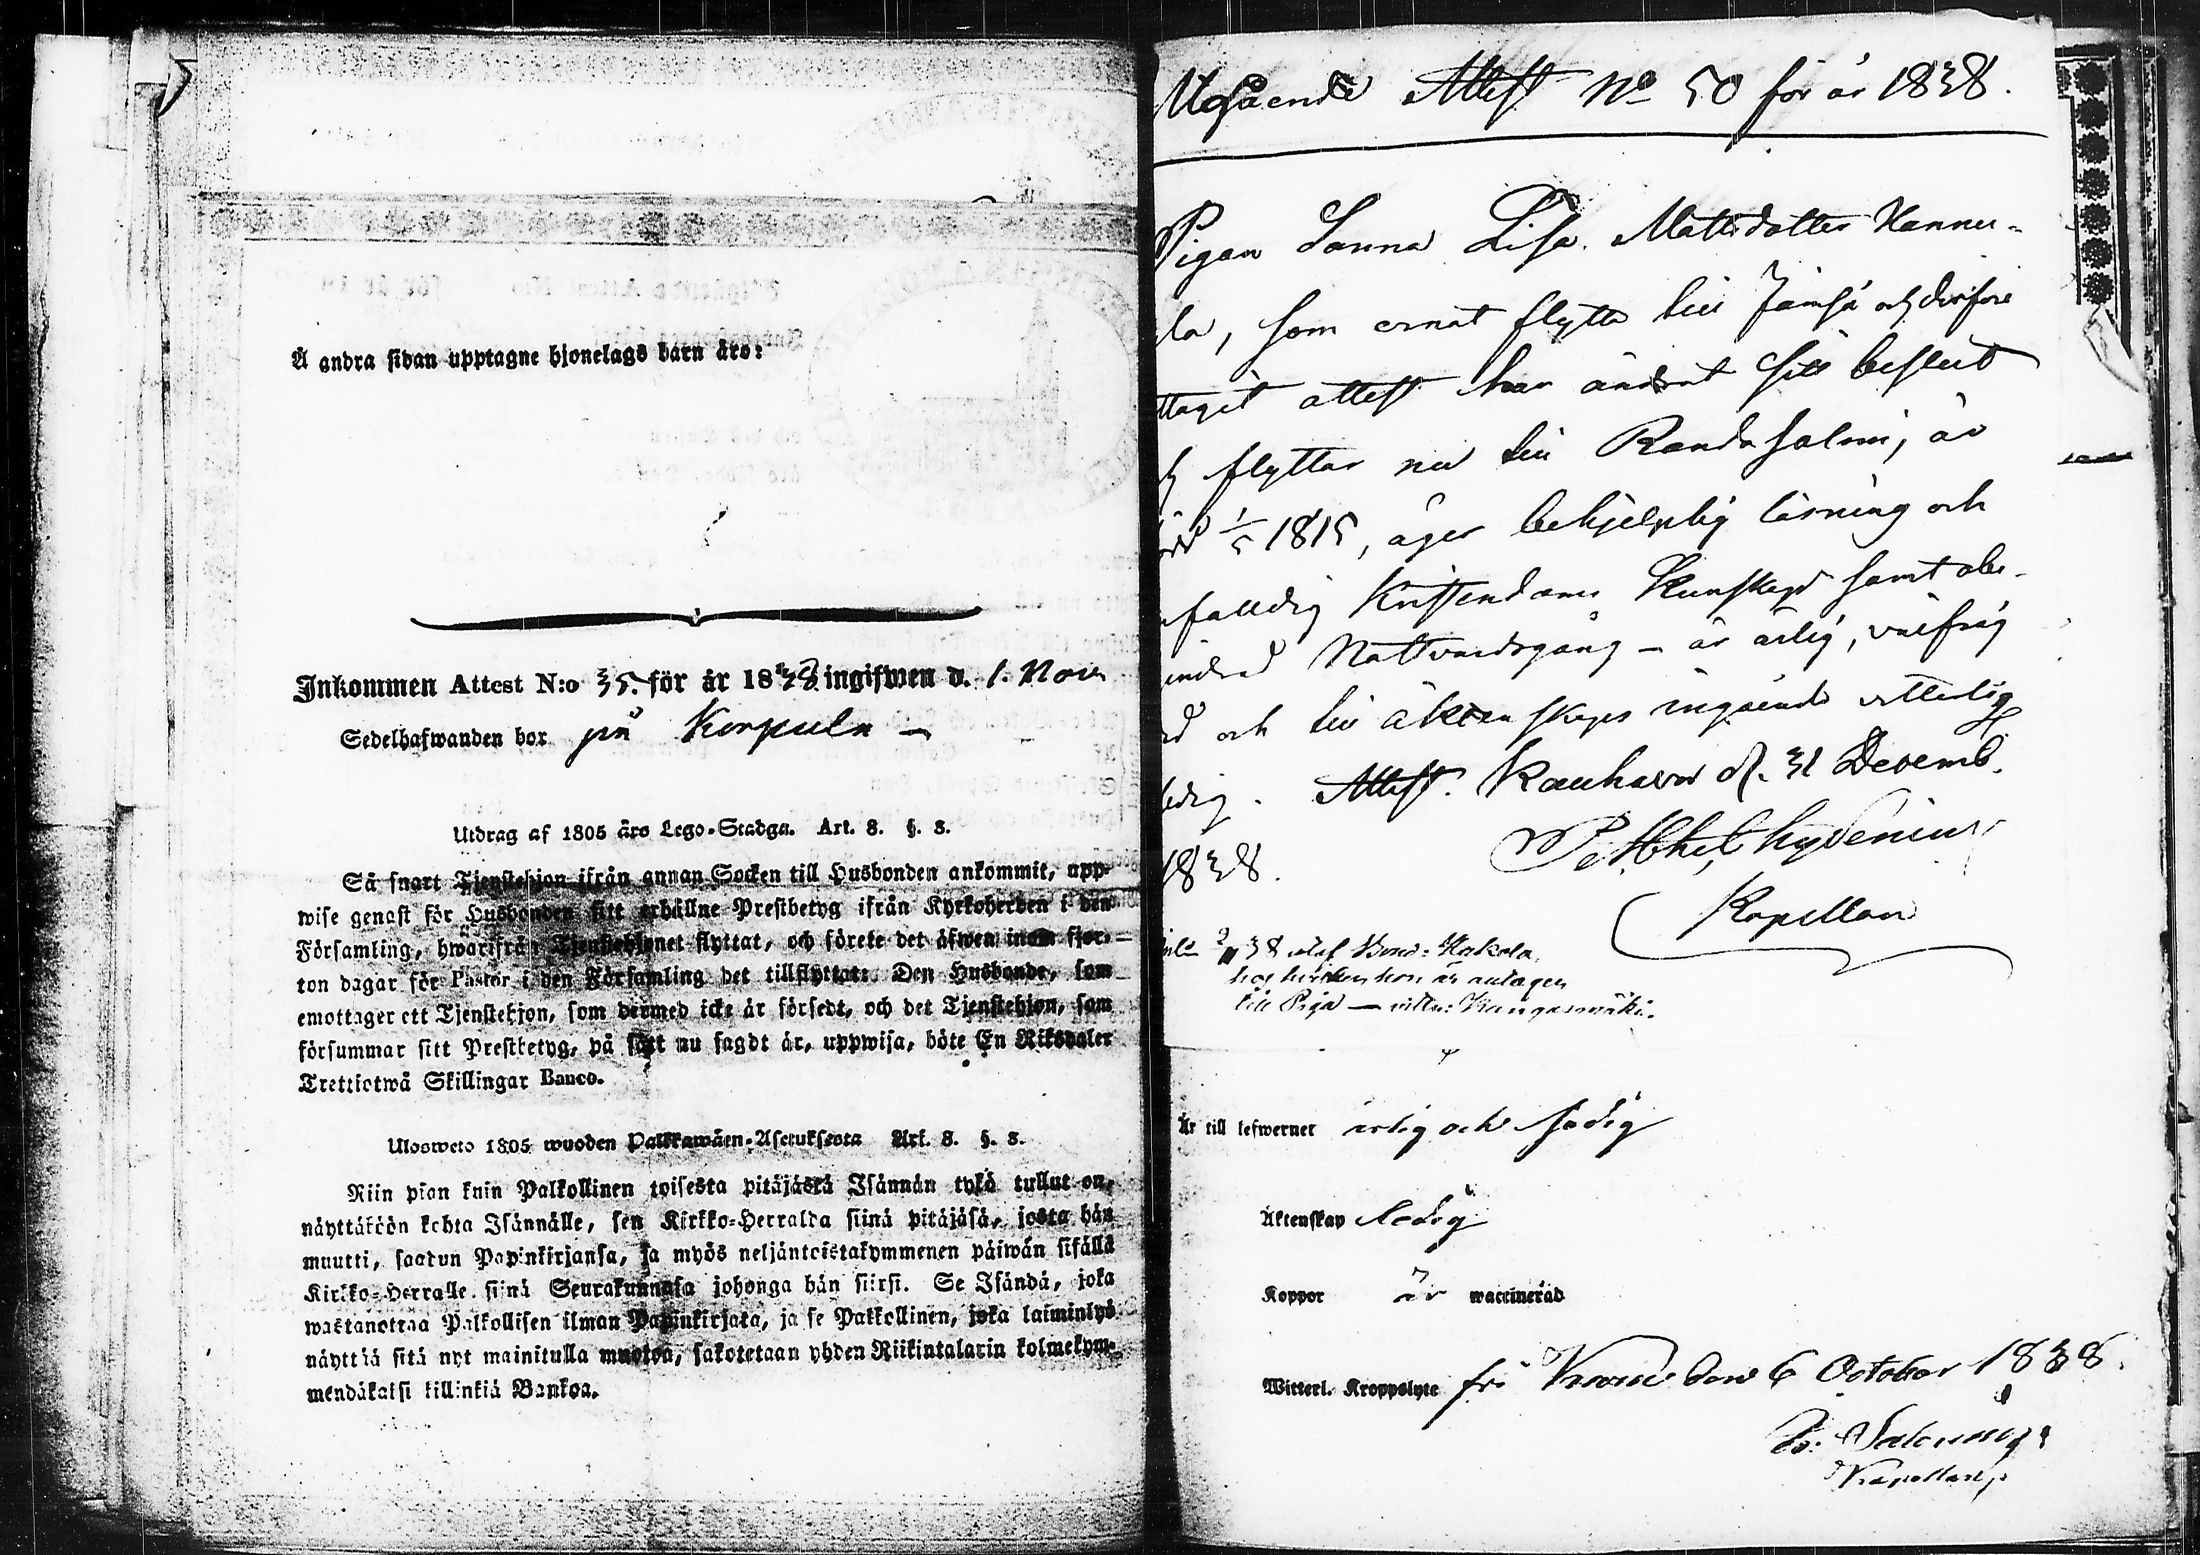 Å andra sidan upptagne hjonelags barn äro:
Inkommen Attest N:o 35. för år 1838 ingifwen d. 1. Nov
Sedelhafwanden bor på Korpula –
Utdrag af 1805 års Lego-Stadga. Art. 8. §. 8.
Så snart Tjenstehjon ifrån annan Socken till Husbonden ankommit, upp-
wise genast för Husbonden sitt erhållne Prestbetyg ifrån Kyrkoherden i den
Församling, hwarifrån Tjenstehjonet flyttat, och förete det äfwen inom fjor-
ton dagar för Pastor i den Församling det tillflyttat. Den Husbonde, som
emottager ett Tjenstehjon, som dermed icke är försedt, och det Tjenstehjon, som
försummar sitt Prestbetyg, på sätt nu sagdt är, uppwisa, böte En Riksdaler
Trettiotwå Skillingar Banco.
Ulosweto 1805 wuoden Palkkawäen-Asetuksesta Art. 8. §. 8.
Niin pian kuin Palkollinen toisesta pitäjästä Isännän tykö tullut on,
näyttäköön kohta Isännälle, sen Kirkko-Herralda siinä pitäjäsä, josta hän
muutti, saadun Papinkirjansa, ja myös neljäntoistakymmenen päiwän sisällä
Kirkko-Herralle siinä Seurakunnasa johonga hän siirsi. Se Isändä, joka
wastanottaa Palkollisen ilman Papinkirjata, ja se Palkollinen, joka laiminlyö
näyttää sitä nyt mainitulla muotoa, sakotetaan yhden Riikintalarin kolmekym-
mendäkaksi killinkiä Bankoa.
Utgående Attest No 50 för år 1838.
Pigan Sanna Lisa Mattsdotter Hannu-
la, som ernat flytta till Jämsä och derföre
ttagit attest har ändrat sitt beslut
h flyttar nu till Randasalmi, är
1/5 1815, äger behjelplig läsning och
nfalldig Kristendoms Kunskap samt obe-
indrad Nattvardsgång – är ärlig, välfräg
d och till äktenskaps ingående vitterlig
ledig. Attest. Kauhava d. 31 Decemb.
1838.
P. Abel Chydenius
Kapellan
38 utaf Bond: Hakola,
hos hvilken hon är antagen
till Piga — vittn: Kangasmäki.
Är till lefwernet ärlig och sedig
Äktenskap ledig
Koppor är waccinerad
Witterl. Kroppslyte fri den 6 October 1838.
Kapellan